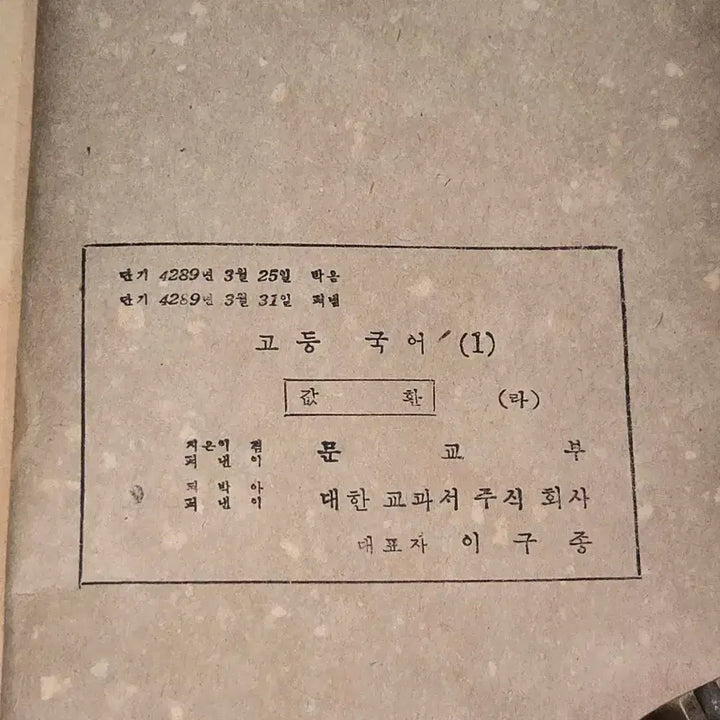 단기 4289년 3월 25일 박음
단기 4289년 3월 31일 펴냄
고등 국어 (1)
값 환 (라)
지은이 겸
펴낸이
문교부
박아
펴낸이
대한 교과서 주식 회사
대표자 이구종